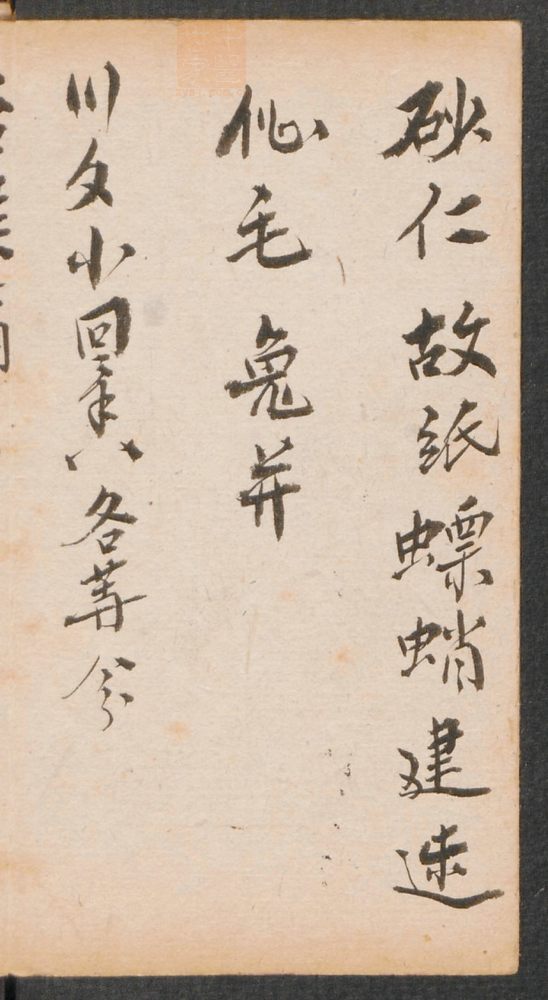 砂仁 故紙 螵蛸 建速
毛 兔并
川文小回 八 各等分